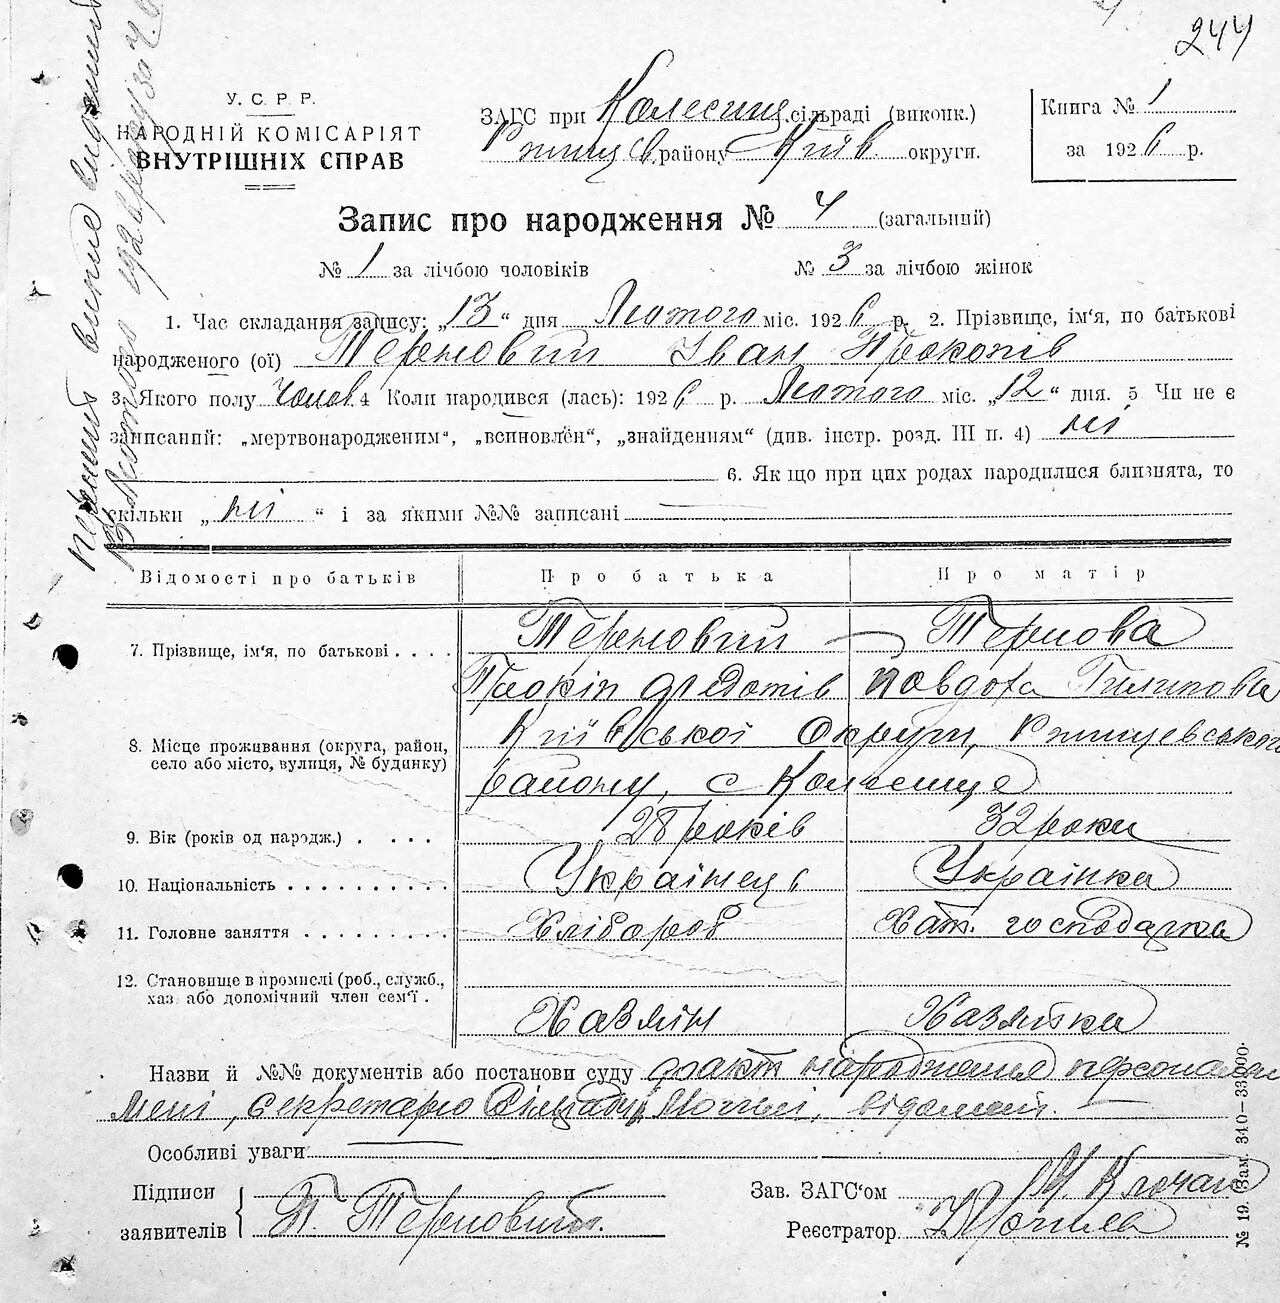 244
У. С. Р. Р.
НАРОДНІЙ КОМІСАРІЯТ
ВНУТРІШНІХ СПРАВ
ЗАГС при Колесищ. сільраді (виконк.)
Ржищев. району Київ. округи.
Книга № 1
за 1926 р.
Запис про народження № 4 (загальний)
№ 1 за лічбою чоловіків № 3 за лічбою жінок
1. Час складання запису: „13“ дня Лютого міс. 1926 р. 2. Прізвище, ім‘я, по батькові
народженого (ої) Терновий Іван Прокопів
3. Якого полу чолов 4 Коли народився (лась): 1926 р. Лютого міс. „12“ дня. 5 Чи не є
записаний: „мертвонародженим“, „всиновлен“, „знайденням“ (див. інстр. розд. III п. 4) ні
6. Як що при цих родах народилися близнята, то
скільки „ ні “ і за якими №№ записані
Відомості про батьків Про батька Про матір
7. Прізвище, ім‘я, по батькові . . . . Терновий Тернова
Прокіп Федотів Йовдоха Пилипова
8. Місце проживання (округа, район,
село або місто, вулиця, № будинку)
Київської Округи, Ржищевського
району, с Колесище
9. Вік (років од народж.) . . . . . 28 років 32 роки
10. Національність . . . . . . . . . . Українець Українка
11. Головне заняття . . . . . . . . . Хлібороб Хат. господарка
12. Становище в промислі (роб., служб.,
хаз або допомічний член сем‘ї .
Хазяїн Хазяйка
Назви й №№ документів або постанови суду факт народження персонально
мені, секретарю Сільради, Могилі, відомий.
Особливі уваги
Підписи
заявителів
П. Терновий.
Зав. ЗАГС‘ом М. Клочан
Реєстратор Могила
№ 19. Зам. 340–33000.